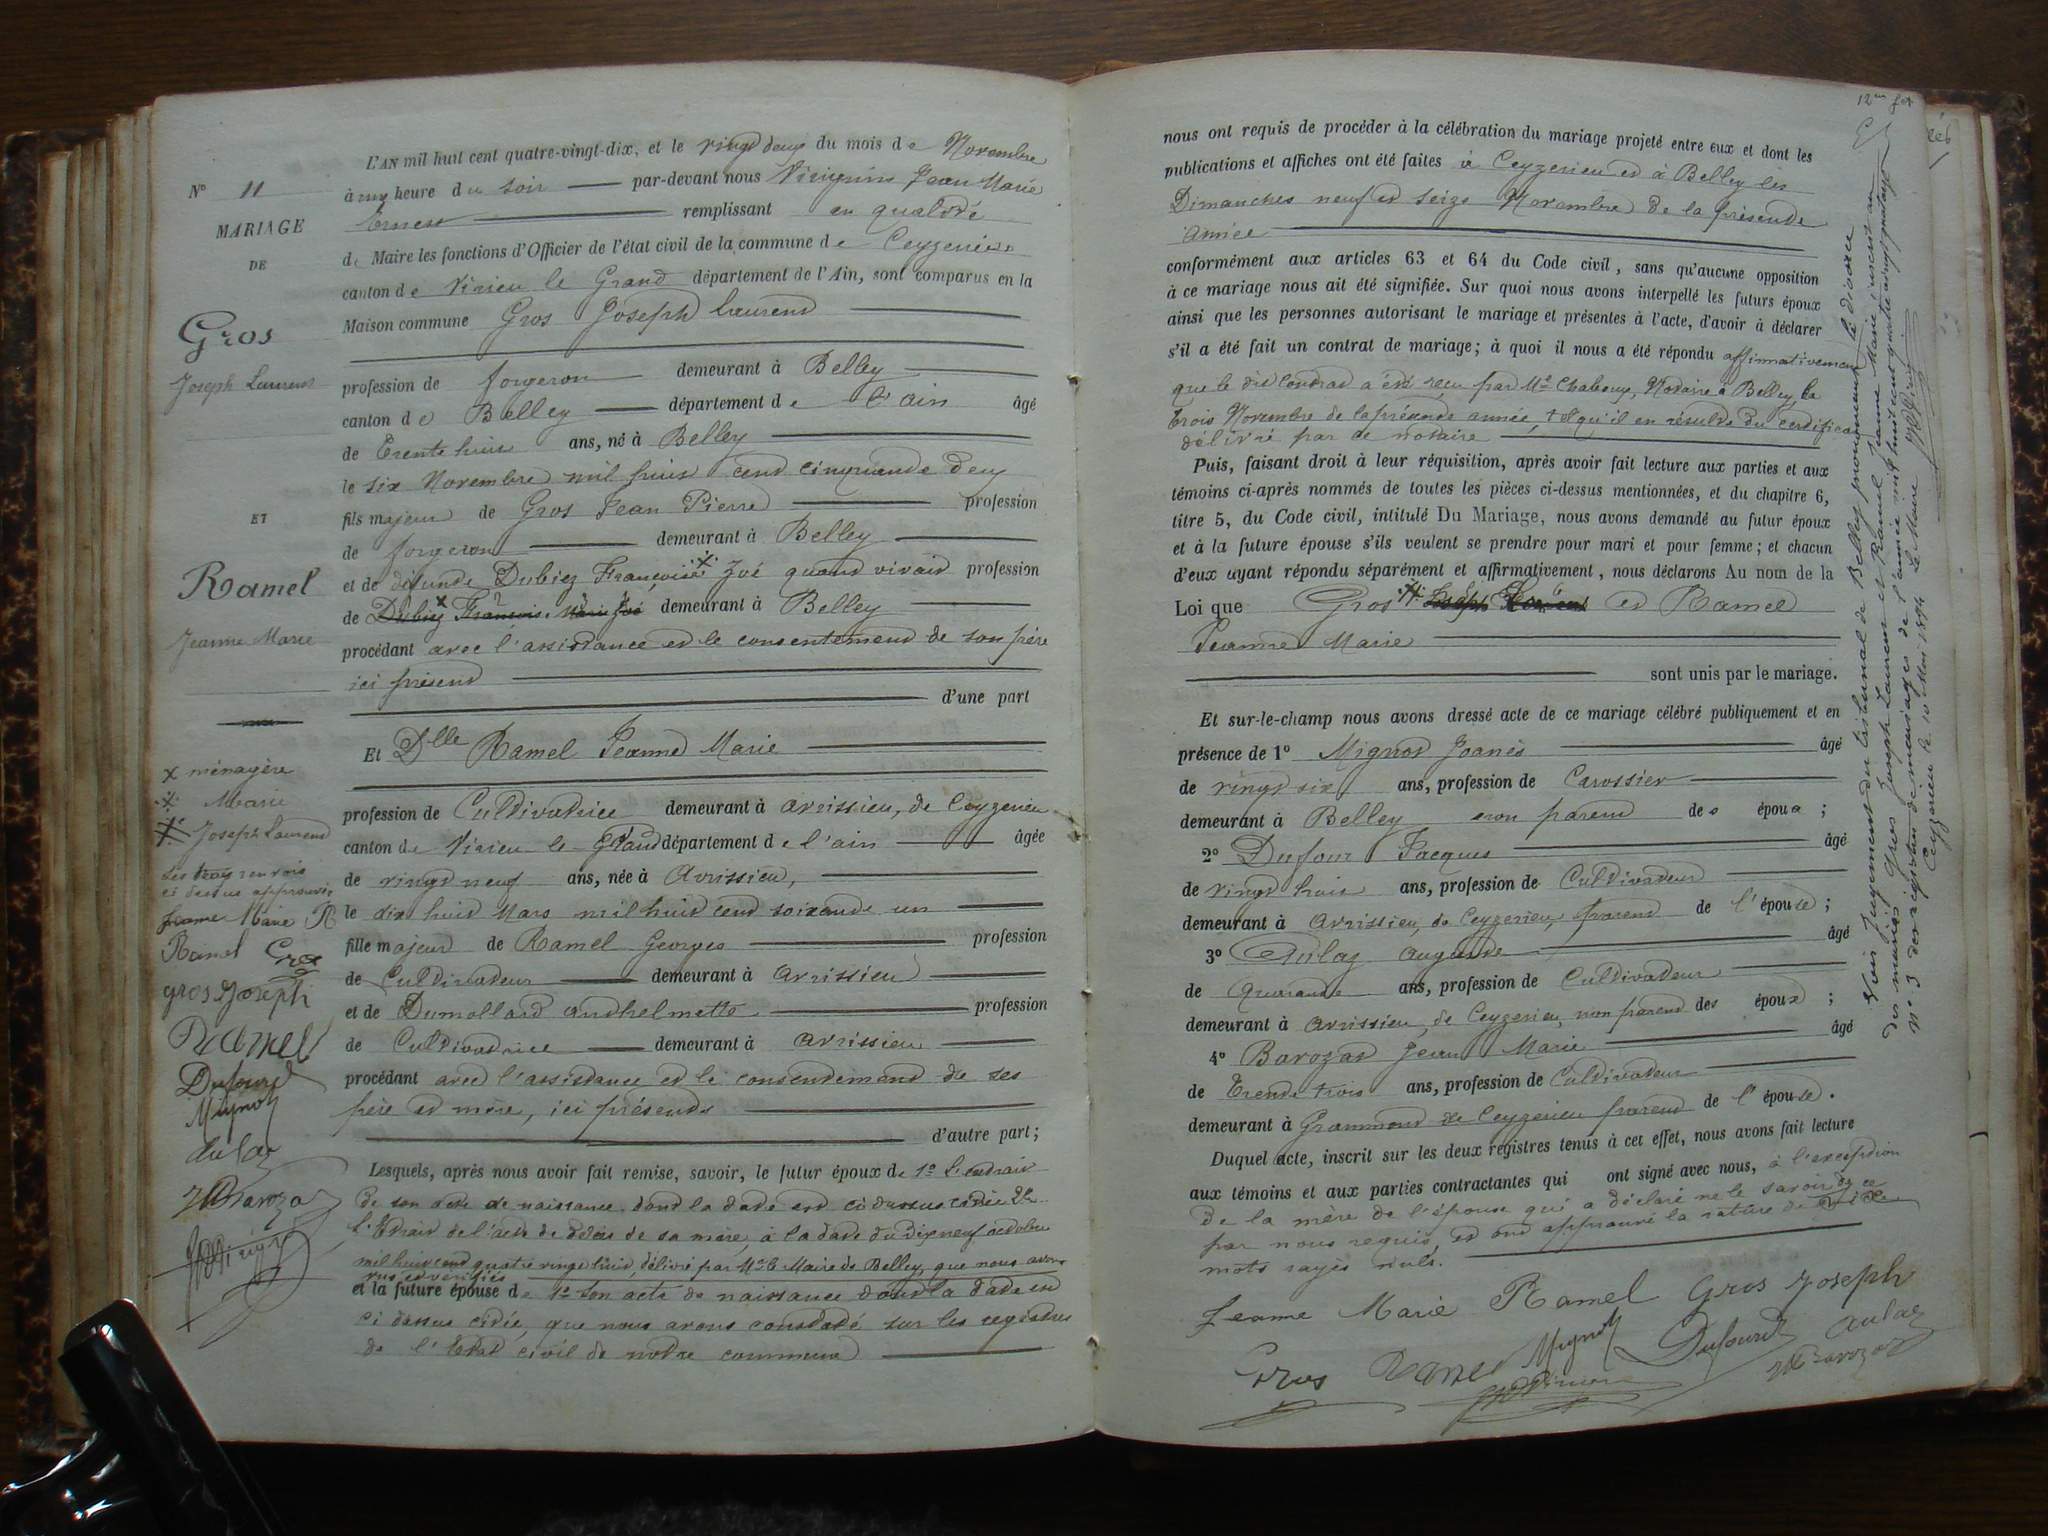 N° 11
MARIAGE
DE
Gros
Joseph Laurent
ET
Ramel
Jeanne Marie
x ménagère
Marie
Joseph Laurent
Les trois renvois
ci dessus approuvés
Jeanne Marie R
Ramel Gros
gros Joseph
Ramel
Dufour
Mignot
aulaz
JMBarozat
L'AN mil huit cent quatre-vingt-dix, et le vingt deux du mois de Novembre
à une heure du soir par-devant nous Jean Marie
Ernest remplissant en qualité
de Maire les fonctions d'Officier de l'état civil de la commune de Ceyzerieu
canton de Virieu le Grand département de l'Ain, sont comparus en la
Maison commune Gros Joseph Laurent
profession de forgeron demeurant à Belley
canton de Belley département de l'ain âgé
de Trente huit ans, né à Belley
le six Novembre mil huit cent cinquante deux
fils majeur de Gros Jean Pierre profession
de forgeron demeurant à Belley
et de défunte Dubiez Françoise x Zoé quand vivait profession
de Dubiez x Françoise Marie Zoé demeurant à Belley
procédant avec l'assistance et le consentement de son père
ici présent
d'une part
Et Dlle Ramel Jeanne Marie
profession de Cultivatrice demeurant à avrissieu, de Ceyzerieu
canton de Virieu le Grand département de l'ain âgée
de vingt neuf ans, née à Avrissieu,
le dix huit Mars mil huit cent soixante un
fille majeur de Ramel Georges profession
de Cultivateur demeurant à avrissieu
et de Dumollard anthelmette profession
de Cultivatrice demeurant à avrissieu
procédant avec l'assistance et le consentement de ses
père et mère, ici présents
d'autre part;
Lesquels, après nous avoir fait remise, savoir, le futur époux de 1° L'extrait
de son acte de naissance dont la date est ci dessus citée 2°
l'Extrait de l'acte de décès de sa mère, à la date du dix neuf octobre
mil huit cent quatre vingt huit, délivré par Mr le Maire de Belley, que nous avons
vus et vérifiés
et la future épouse de 1° son acte de naissance dont la date est
ci dessus citée, que nous avons constaté sur les registres
de l'Etat civil de notre commune
nous ont requis de procéder à la célébration du mariage projeté entre eux et dont les
publications et affiches ont été faites à Ceyzerieu et à Belley les
Dimanches neuf et seize Novembre de la présente
année
conformément aux articles 63 et 64 du Code civil, sans qu'aucune opposition
à ce mariage nous ait été signifiée. Sur quoi nous avons interpellé les futurs époux
ainsi que les personnes autorisant le mariage et présentes à l'acte, d'avoir à déclarer
s'il a été fait un contrat de mariage; à quoi il nous a été répondu affirmativement
que le dit Contrat a été reçu par Me Chaboux, Notaire à Belley, le
trois Novembre de la présente année, tel qu'il en résulte du certificat
délivré par ce notaire
Puis, faisant droit à leur réquisition, après avoir fait lecture aux parties et aux
témoins ci-après nommés de toutes les pièces ci-dessus mentionnées, et du chapitre 6,
titre 5, du Code civil, intitulé Du Mariage, nous avons demandé au futur époux
et à la future épouse s'ils veulent se prendre pour mari et pour femme; et chacun
d'eux ayant répondu séparément et affirmativement, nous déclarons Au nom de la
Loi que Gros Joseph Laurent et Ramel
Jeanne Marie
sont unis par le mariage.
Et sur-le-champ nous avons dressé acte de ce mariage célébré publiquement et en
présence de 1° Mignot Joanès âgé
de vingt six ans, profession de Carossier
demeurant à Belley non parent des époux ;
2° Dufour Jacques âgé
de vingt trois ans, profession de Cultivateur
demeurant à avrissieu, de Ceyzerieu, parent de l'épouse ;
3° Aulaz auguste âgé
de Quarante ans, profession de Cultivateur
demeurant à avrissieu, de Ceyzerieu, non parent des époux ;
4° Barozat Jean Marie âgé
de Trente trois ans, profession de Cultivateur
demeurant à Grammond de Ceyzerieu parent de l'épouse.
Duquel acte, inscrit sur les deux registres tenus à cet effet, nous avons fait lecture
aux témoins et aux parties contractantes qui ont signé avec nous, à l'exception
de la mère de l'épouse qui a déclaré ne le savoir de ce
par nous requis, et ont approuvé la rature de
mots rayés nuls.
Jeanne Marie Ramel Gros Joseph
Gros Ramel Mignot Dufour aulaz
JMBarozat
Voir jugement du tribunal de Belley prononçant le divorce
des mariés Gros Joseph Laurent et Ramel Jeanne Marie, inscrit au
n° 3 des registres de mariages de l'année mil huit cent quatre vingt quatorze
Ceyzerieu le 10 Mai 1894 Le Maire